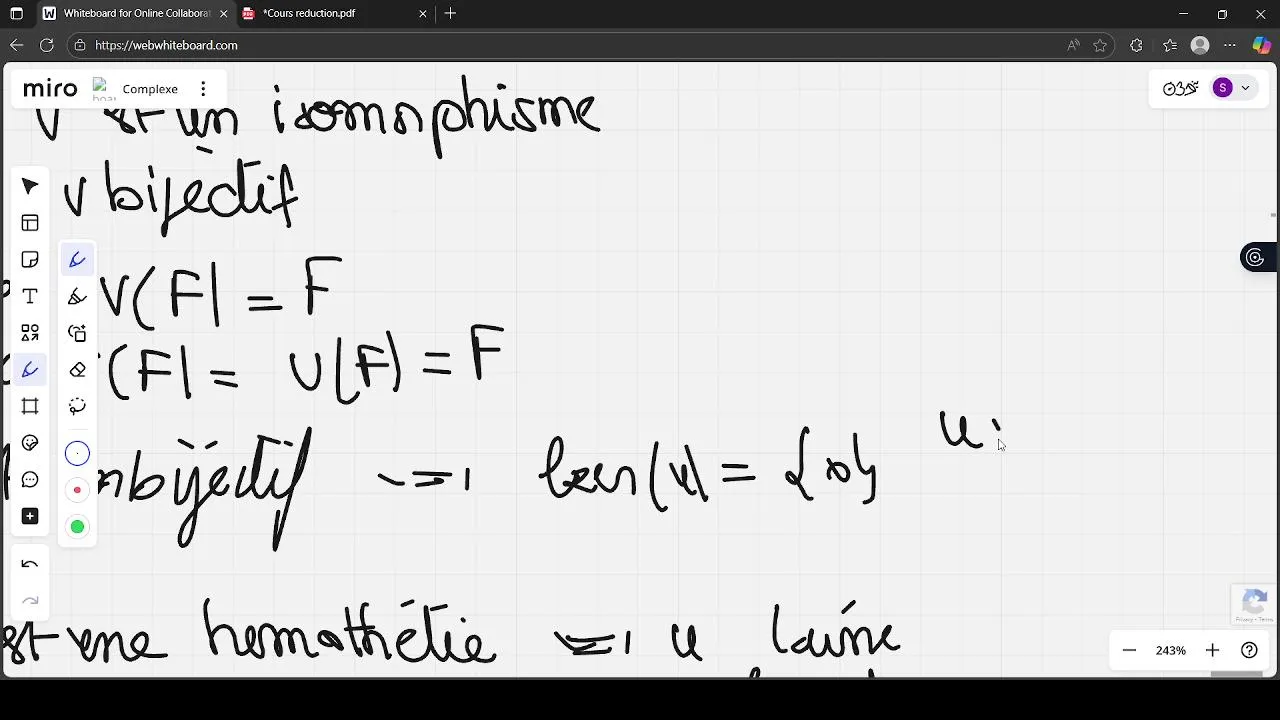 Whiteboard for Online Collaborat
*Cours reduction.pdf
https://webwhiteboard.com
miro Complexe
est un isomorphisme
v bijectif
V(F) = F
(F) = U(F) = F
bijectif <=> ker(u) = {0} u:
est une homothétie <=> u laisse
243%
Privacy - Terms